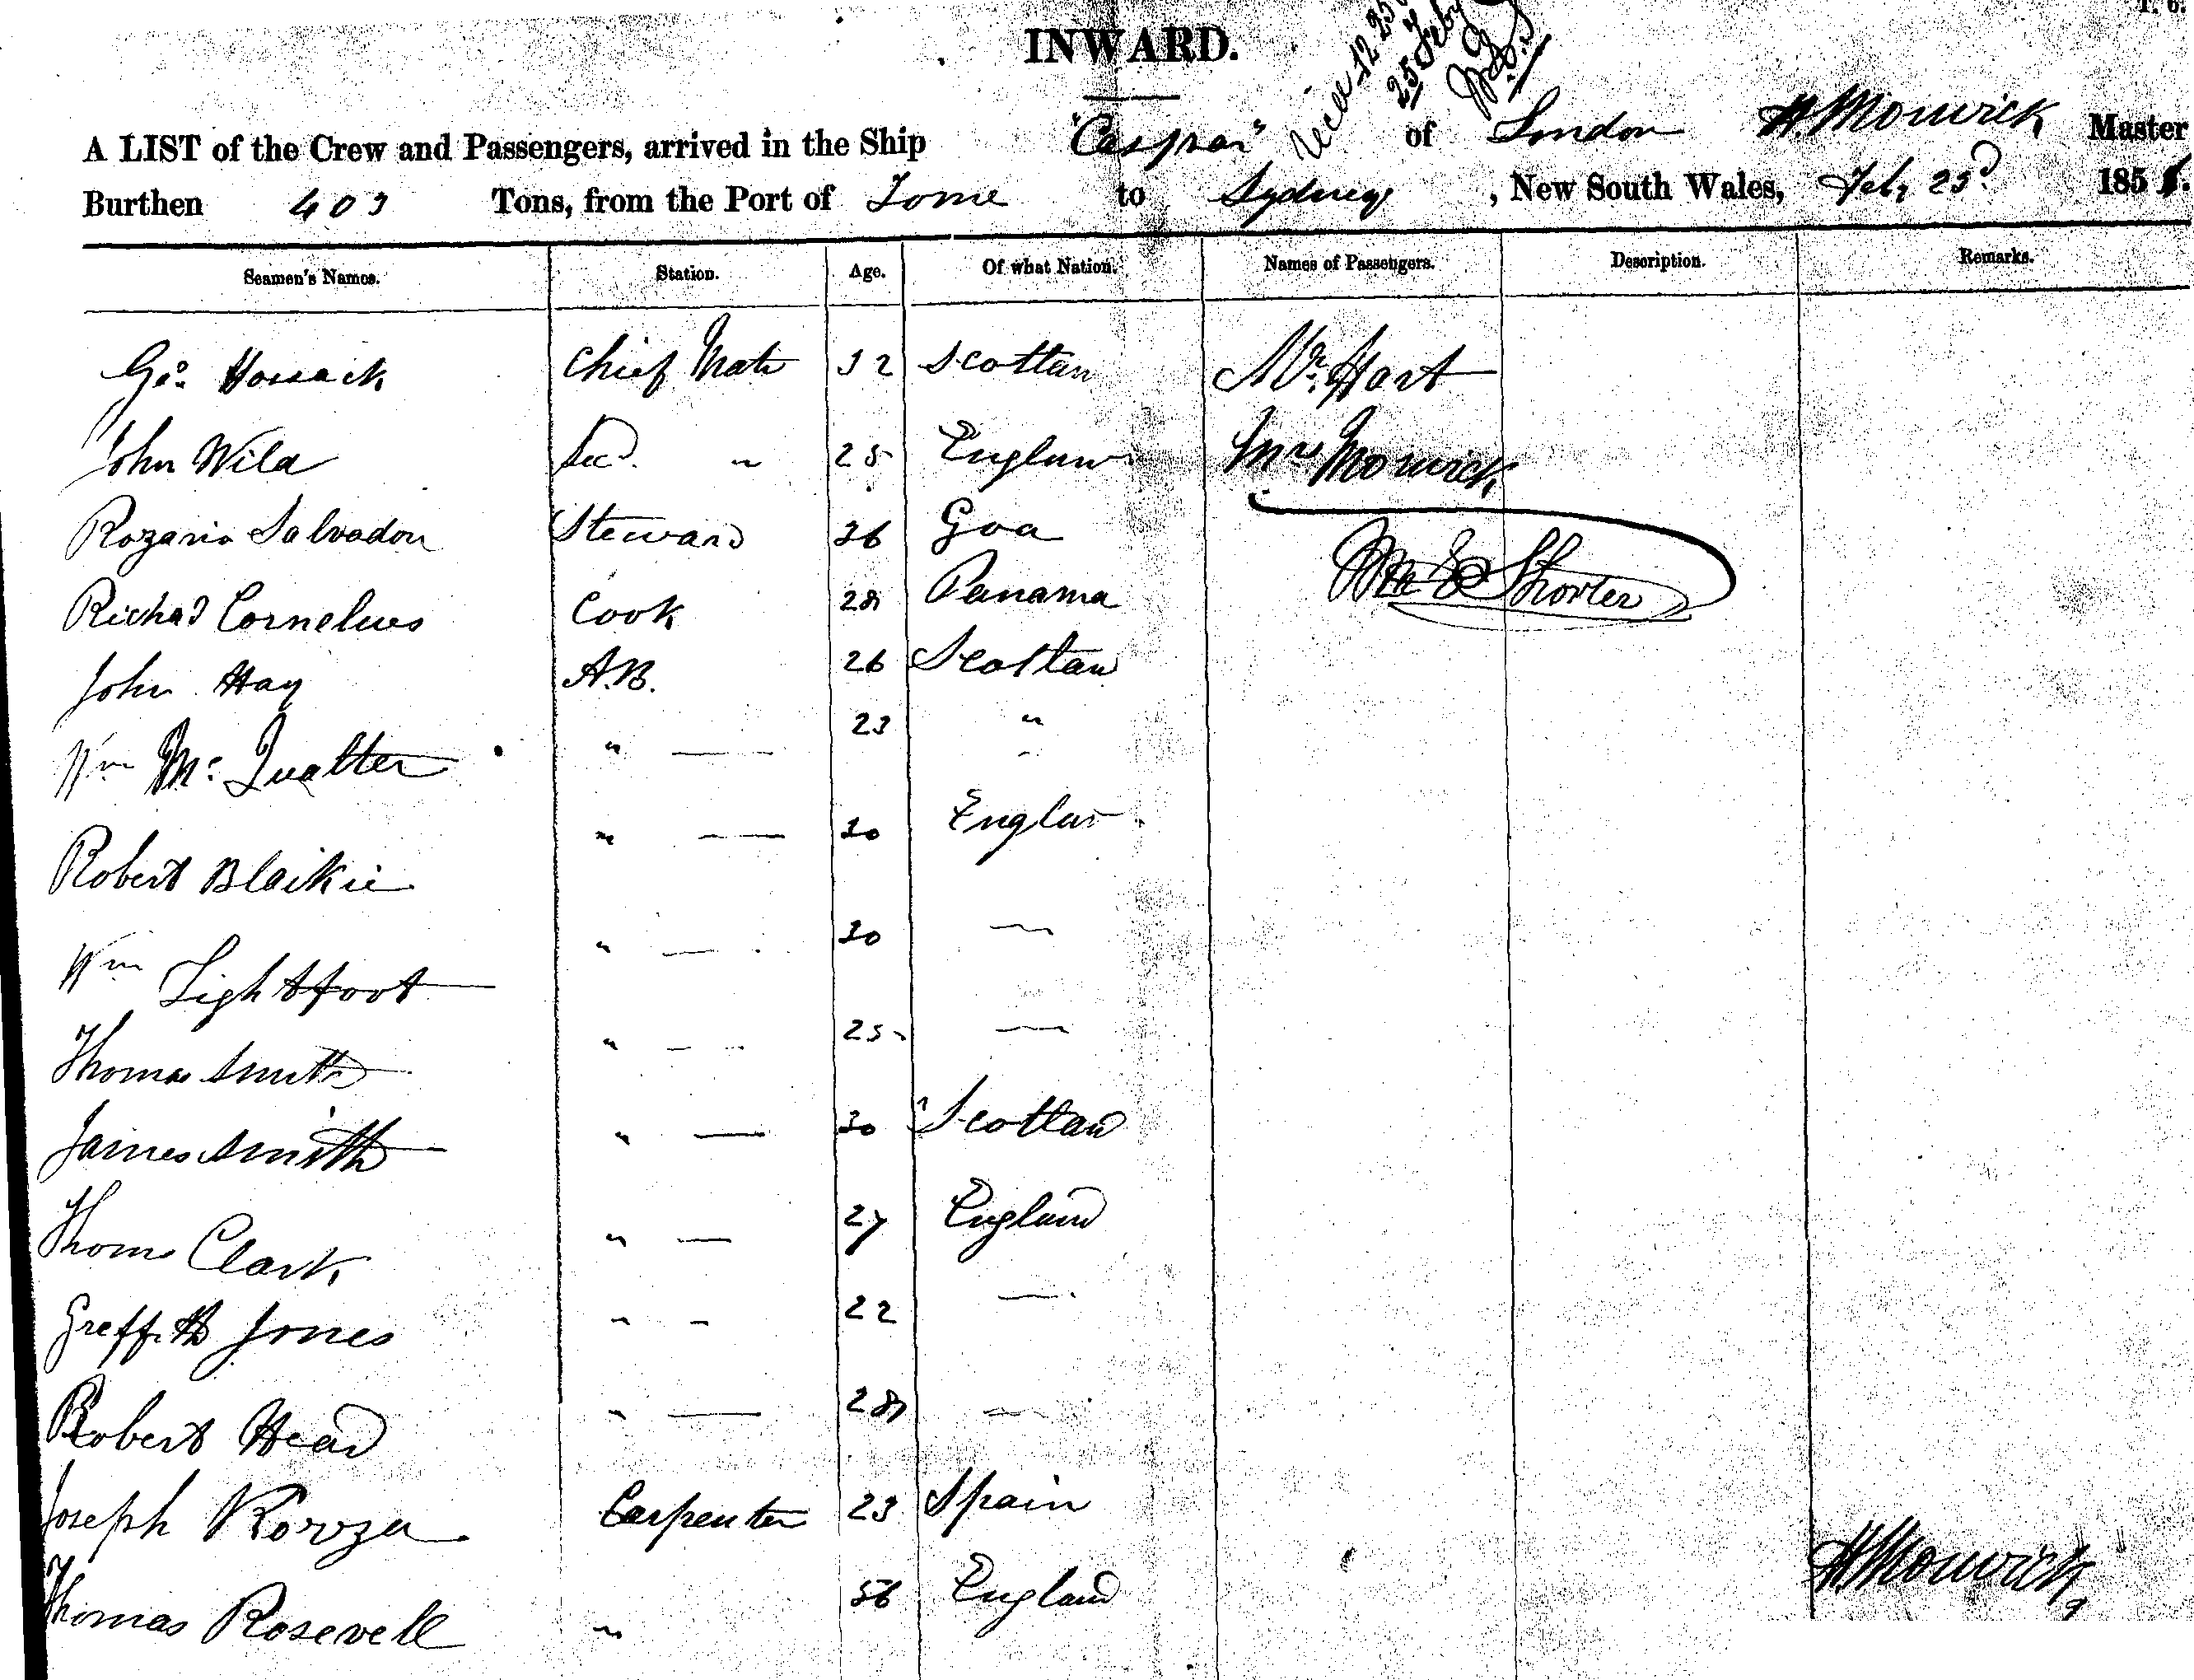 INWARD.
25 Feby
A LIST of the Crew and Passengers, arrived in the Ship "Caspar" of London H. Monwick Master
Burthen 403 Tons, from the Port of Tome to Sydney, New South Wales, Feb, 23d. 185
Seamen's Names. Station. Age. Of what Nation. Names of Passengers. Description. Remarks.
Geo. Hossack Chief Mate 32 Scotlan Mr. Hart
John Wild Secd. " 25 Englan Mrs Monwick
Rozario Salvador Steward 36 Goa
Richad Cornelius Cook 28 Panama Shorter
John Hay A.B. 26 Scotlan
Wm Mc Qualter " — 23 "
Robert Blaikie " — 30 Englan
Wm Lightfoot " — 30 —
Thomas Smith " — 25 —
James Smith " — 30 Scotland
Thoms Clark " — 27 England
Greffith Jones " — 22 —
Robert Head " — 28 —
Joseph Rovza Carpenter 23 Spain
H Monwick
Thomas Rosevell " 56 England